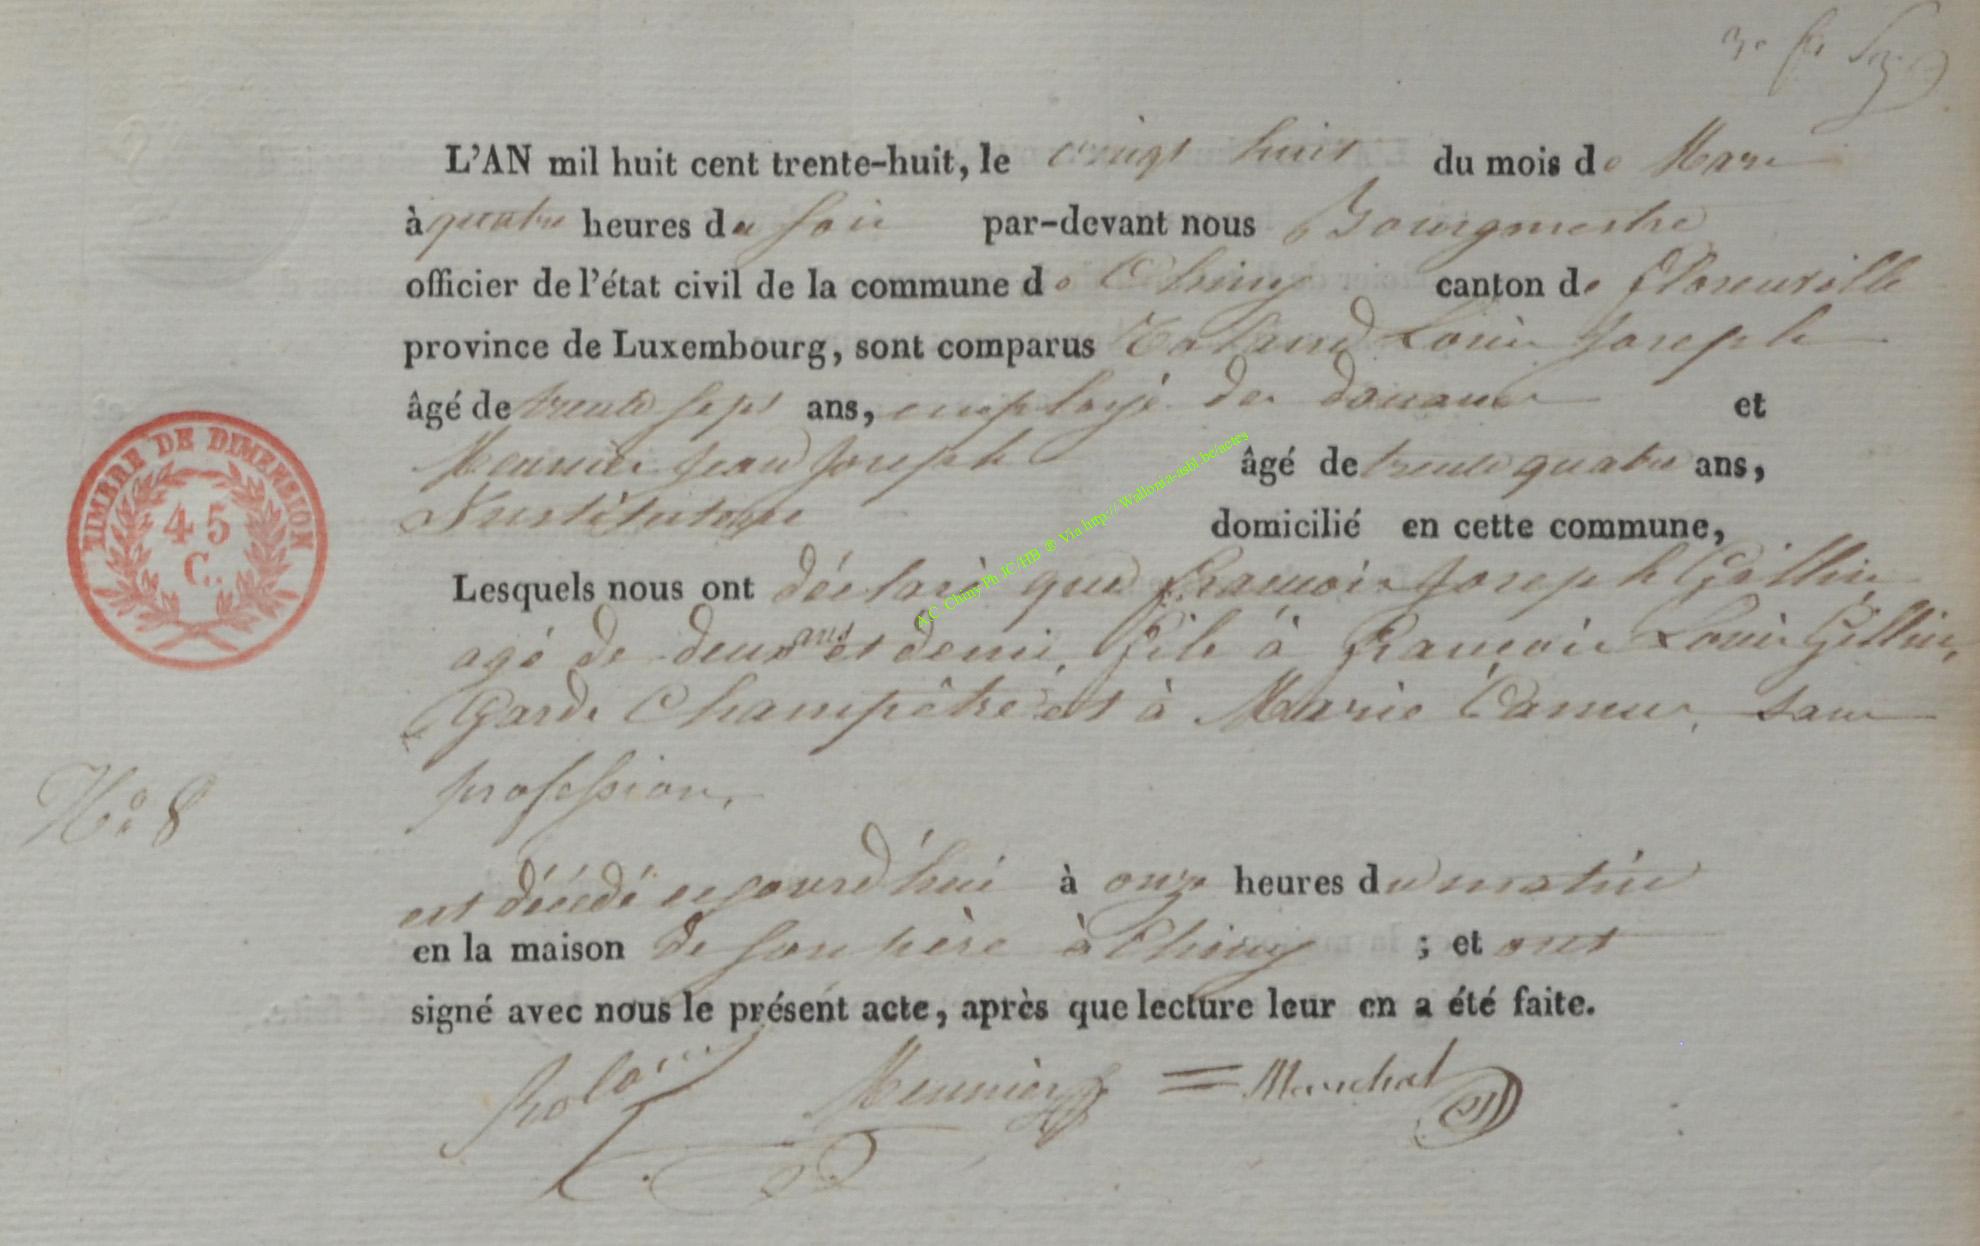 L'AN mil huit cent trente-huit, le vingt huit du mois de Mars
à quatre heures du soir par-devant nous Bourgmestre
officier de l'état civil de la commune de Chiny canton de Florenville
province de Luxembourg, sont comparus Roland Louis Joseph
âgé de trente sept ans, employé des douanes et
Meunier Jean Joseph âgé de trente quatre ans,
Instituteur domicilié en cette commune,
Lesquels nous ont déclaré que François Joseph Gillin
agé de deux ans et demi, fils à François Louis Gillin,
Garde Champêtre et à Marie Camus, sans
profession,
est décédé aujourd'hui à onze heures du matin
en la maison de son père à Chiny ; et ont
signé avec nous le présent acte, après que lecture leur en a été faite.
Meunier = Marechal
TIMBRE DE DIMENSION
45
C.
N° 8
A.C. Chiny Ph JC/HB ® Via http://Wallonia-asbl.be/actes